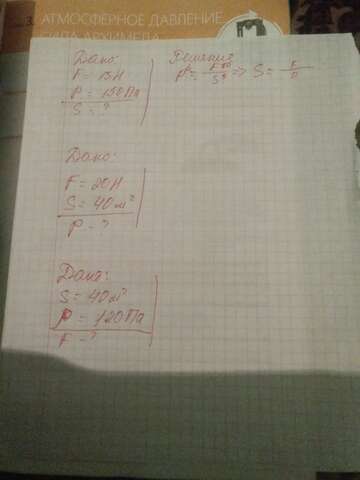 3. АТМОСФЕРНОЕ ДАВЛЕНИЕ
СИЛА АРХИМЕДА
Дано:
F = 15Н
P = 150Па
S = ?
Решение
P = F/S => S = F/P
Дано:
F = 20Н
S = 40м²
P - ?
Дано:
S = 40м²
P = 120Па
F - ?